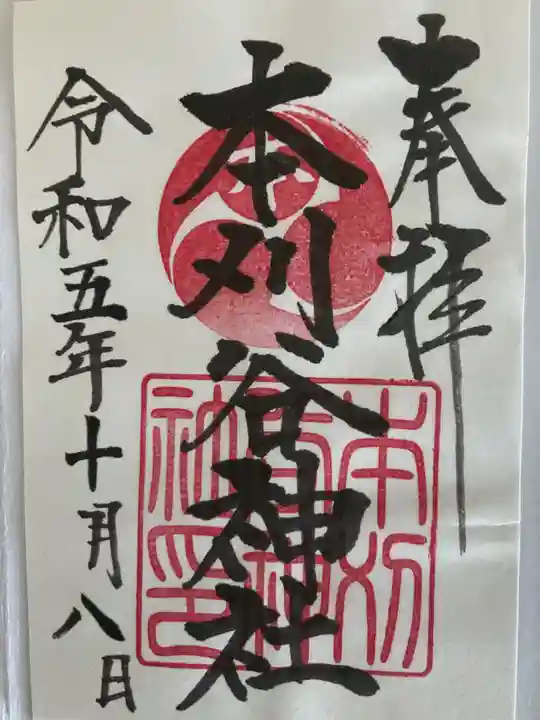 奉拝
本刈谷神社
本刈谷神社印
令和五年十月八日